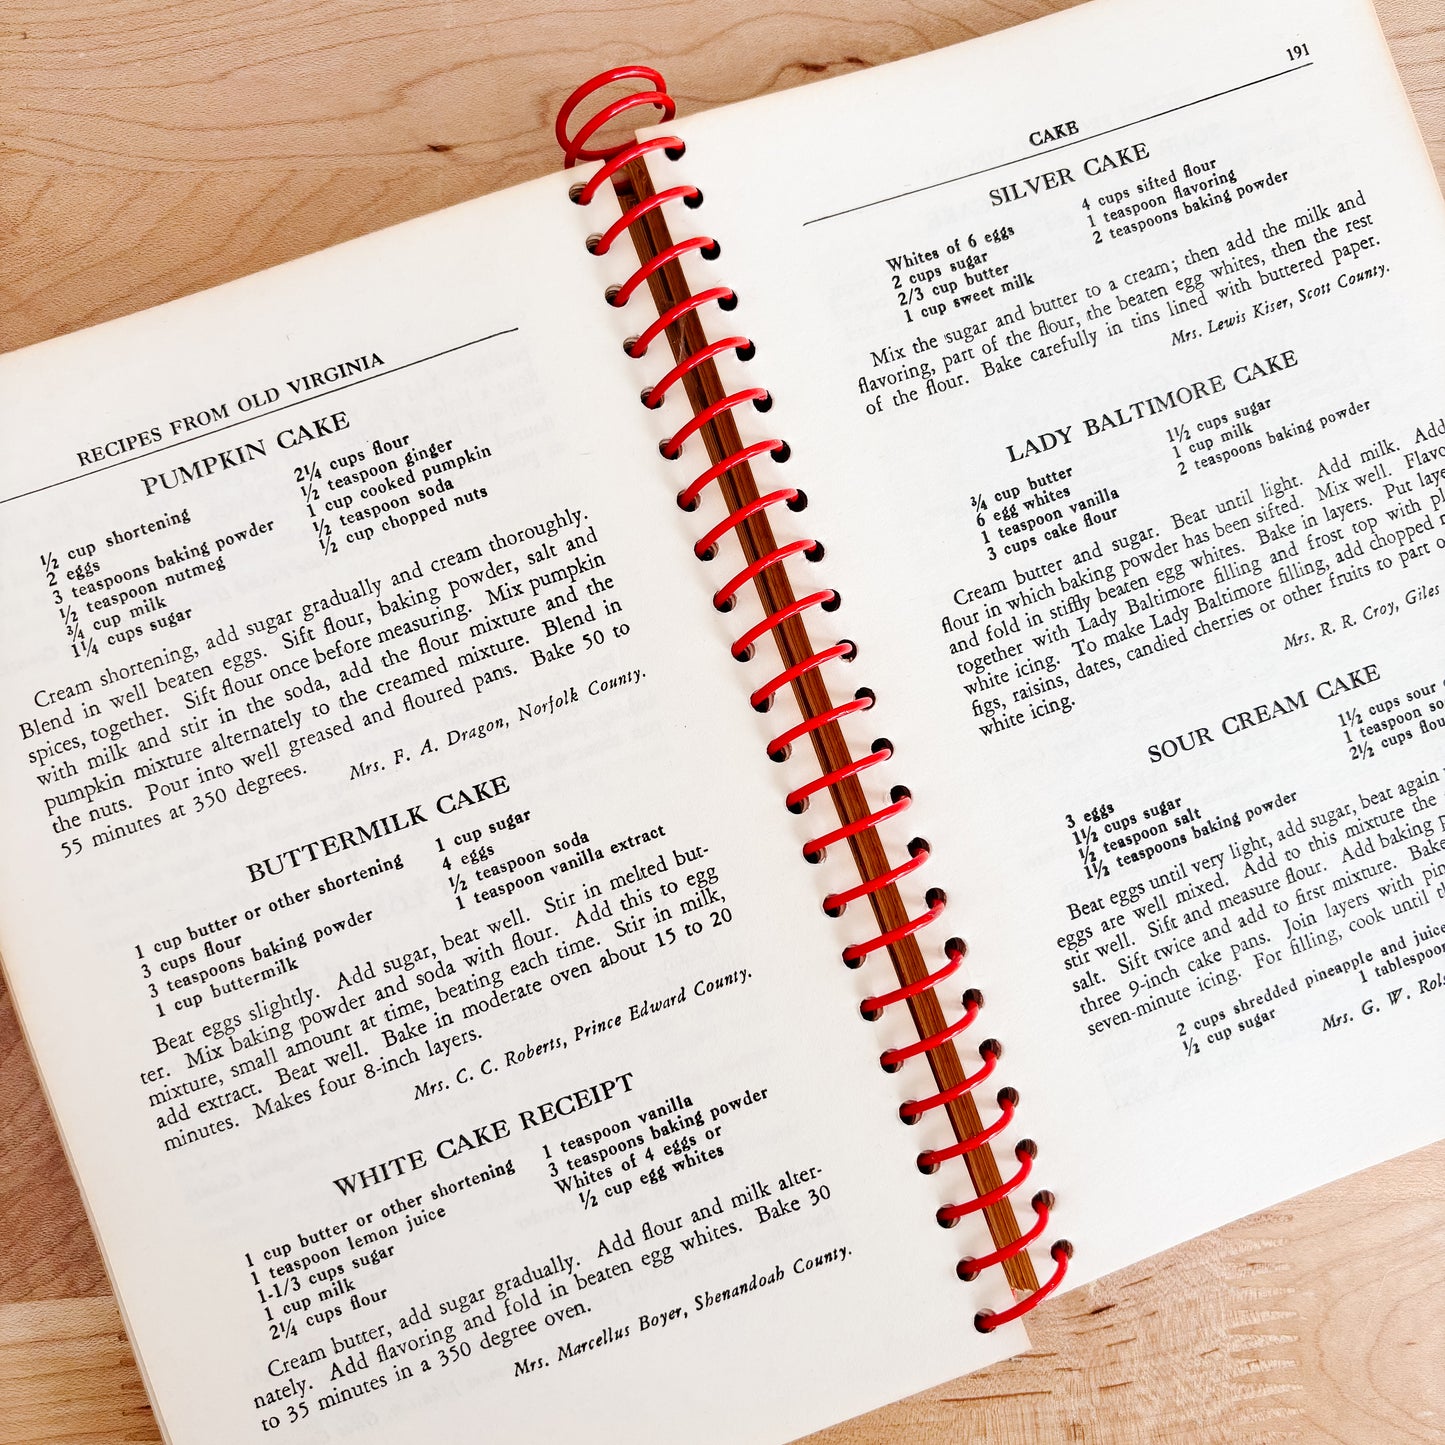 RECIPES FROM OLD VIRGINIA
PUMPKIN CAKE
½ cup shortening
2 eggs
3 teaspoons baking powder
½ teaspoon nutmeg
¾ cup milk
1¼ cups sugar
2¼ cups flour
½ teaspoon ginger
1 cup cooked pumpkin
½ teaspoon soda
½ cup chopped nuts
Cream shortening, add sugar gradually and cream thoroughly.
Blend in well beaten eggs. Sift flour, baking powder, salt and
spices, together. Sift flour once before measuring. Mix pumpkin
with milk and stir in the soda, add the flour mixture and the
pumpkin mixture alternately to the creamed mixture. Blend in
the nuts. Pour into well greased and floured pans. Bake 50 to
55 minutes at 350 degrees.
Mrs. F. A. Dragon, Norfolk County.
BUTTERMILK CAKE
1 cup butter or other shortening
3 cups flour
3 teaspoons baking powder
1 cup buttermilk
1 cup sugar
4 eggs
½ teaspoon soda
1 teaspoon vanilla extract
Beat eggs slightly. Add sugar, beat well. Stir in melted but-
ter. Mix baking powder and soda with flour. Add this to egg
mixture, small amount at time, beating each time. Stir in milk,
add extract. Beat well. Bake in moderate oven about 15 to 20
minutes. Makes four 8-inch layers.
Mrs. C. C. Roberts, Prince Edward County.
WHITE CAKE RECEIPT
1 cup butter or other shortening
1 teaspoon lemon juice
1-1/3 cups sugar
1 cup milk
2¼ cups flour
1 teaspoon vanilla
3 teaspoons baking powder
Whites of 4 eggs or
½ cup egg whites
Cream butter, add sugar gradually. Add flour and milk alter-
nately. Add flavoring and fold in beaten egg whites. Bake 30
to 35 minutes in a 350 degree oven.
Mrs. Marcellus Boyer, Shenandoah County.
191
CAKE
SILVER CAKE
Whites of 6 eggs
2 cups sugar
2/3 cup butter
1 cup sweet milk
4 cups sifted flour
1 teaspoon flavoring
2 teaspoons baking powder
Mix the sugar and butter to a cream; then add the milk and
flavoring, part of the flour, the beaten egg whites, then the rest
of the flour. Bake carefully in tins lined with buttered paper.
Mrs. Lewis Kiser, Scott County.
LADY BALTIMORE CAKE
¾ cup butter
6 egg whites
1 teaspoon vanilla
3 cups cake flour
1½ cups sugar
1 cup milk
2 teaspoons baking powder
Cream butter and sugar. Beat until light. Add milk. Add
flour in which baking powder has been sifted. Mix well.
and fold in stiffly beaten egg whites. Bake in layers. Put
together with Lady Baltimore filling and frost top with
white icing. To make Lady Baltimore filling, add chopped
figs, raisins, dates, candied cherries or other fruits to part
white icing.
Mrs. R. R. Croy, Giles
SOUR CREAM CAKE
3 eggs
1½ cups sugar
½ teaspoon salt
1½ teaspoons baking powder
1½ cups sour
1 teaspoon
2½ cups
Beat eggs until very light, add sugar, beat again
eggs are well mixed. Add to this mixture the
stir well. Sift and measure flour. Add baking
salt. Sift twice and add to first mixture. Bake
three 9-inch cake pans. Join layers with
seven-minute icing. For filling, cook until
2 cups shredded pineapple and juice
½ cup sugar
1
Mrs. G. W.